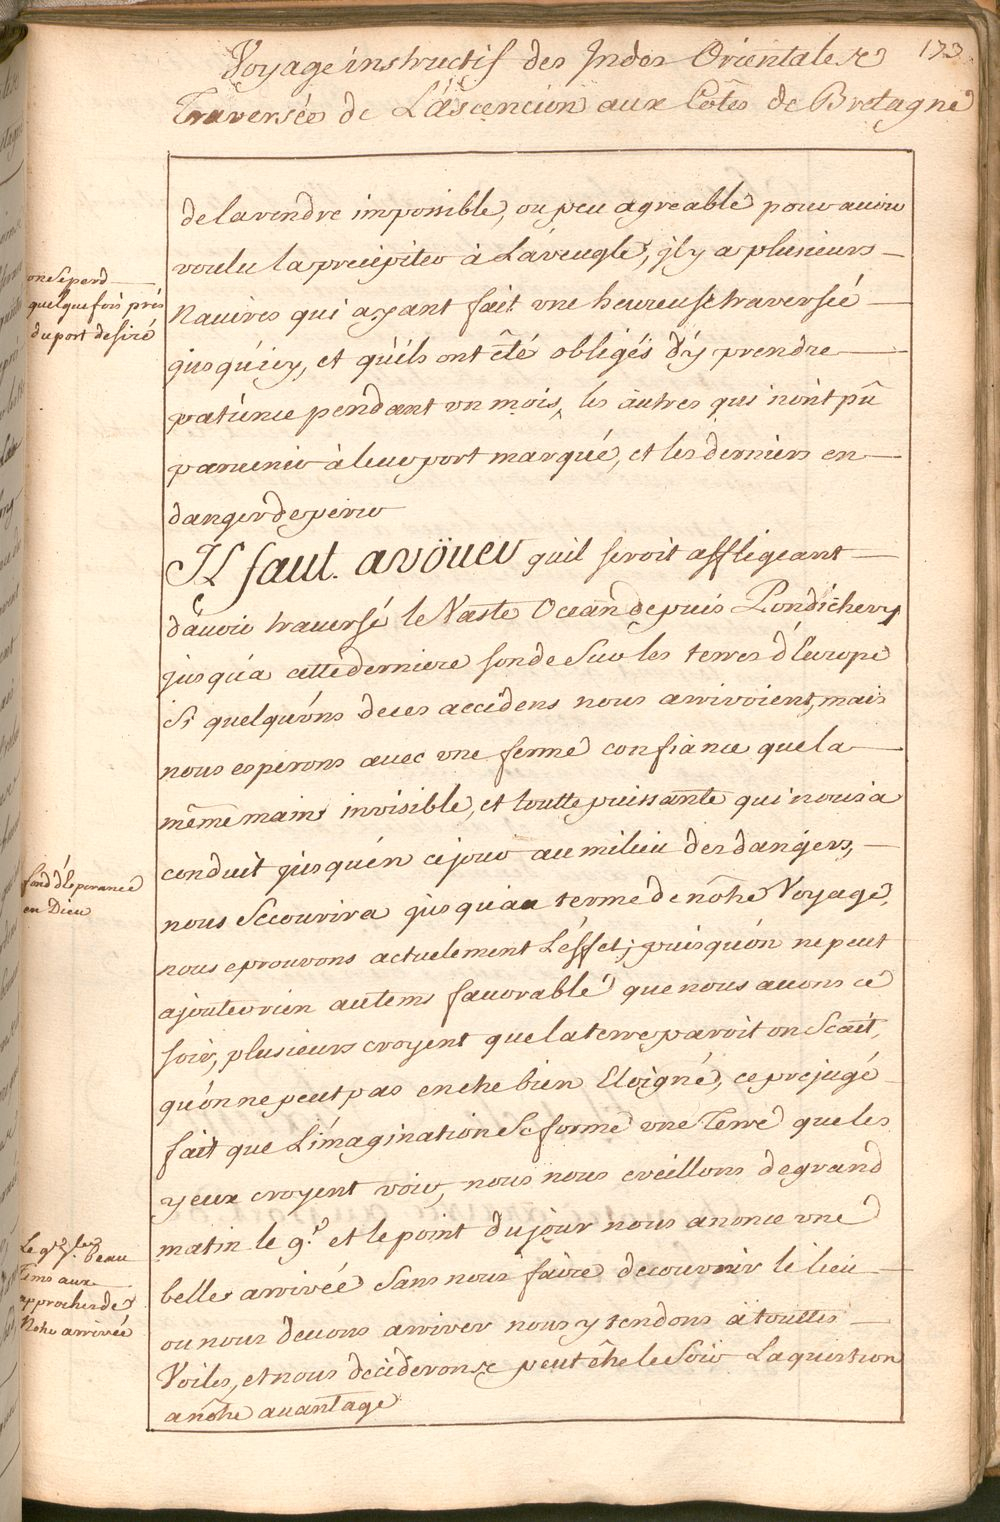 Voyage instructif des Indes Orientales 173
Traversée de L'ascencion aux Côtes de Bretagne
de la rendre impossible, ou peu agreable pour avoir
voulu la precipiter à L'aveugle, jl y a plusieurs
on se perd
quelque fois prés
du port desiré
Navires qui ayant fait une heureuse traversée
jusqu'icy, et qu'ils ont êté obligés d'y prendre
patience pendant un mois, les autres qui n'ont pû
parvenir à leur port marqué, et les derniers en
danger de perir
Il faut avöuer quil seroit affligeant
d'avoir traversé le Vaste Ocean depuis Pondichery
jusqu'a cette derniere sonde Sur les terres d'Europe
Si quelqu'uns de ces accidens nous arrivoient, mais
nous esperons avec une ferme confiance que la
même main invisible, et toutte puissante qui nous a
conduit jusqu'en ce jour au milieu des dangers,
fond d'esperance
en Dieu
nous Secourira jusqu'au terme de nôtre Voyage,
nous eprouvons actuelement L'effet; puisqu'on ne peut
ajouter rien au tems favorable que nous avons ce
soir, plusieurs croyent que la terre paroit on Scait,
qu'on ne peut pas en etre bien Eloigné, ce prejugé
fait que L'imagination Se forme une Terre que les
yeux croyent voir, nous nous eveillons de grand
matin le 9.e et le point du jour nous anonce une
Le 9.e beau
Tems aux
approches de
Notre arrivée
belle arrivée Sans nous faire decouvrir le lieu
ou nous devons arriver nous y tendons à touttes
Voiles, et nous deciderons peut être le Soir La question
a nôtre avantage